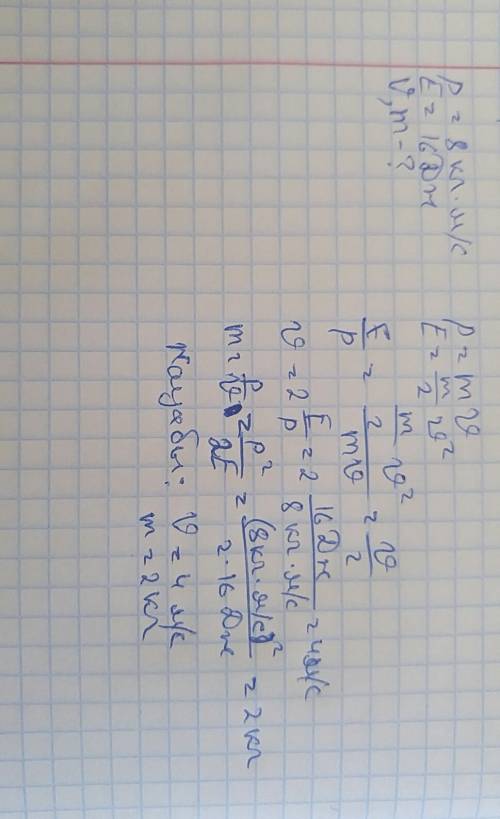 P = 8 кг·м/с
E = 16 Дж
υ, m - ?
P = m υ
E = m/2 υ²
E/P = (m/2 υ²)/(m υ) = υ/2
υ = 2 E/P = 2 16 Дж/8 кг·м/с = 4 м/с
m = P/υ = P²/2E = (8 кг·м/с)²/2·16 Дж = 2 кг
υ = 4 м/с
m = 2 кг